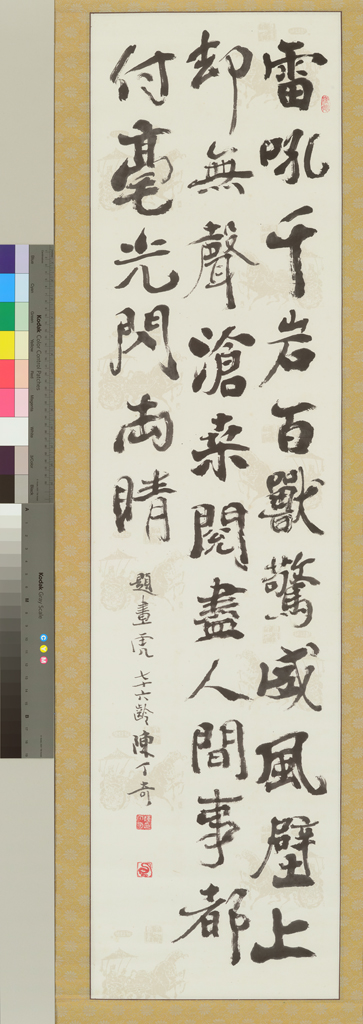 雷吼千岩百獸驚威風壁上
却無聲滄桑閱盡人間事都
付毫光閃兩睛
題畫虎 七十六齡陳丁奇
Kodak Color Control Patches
Kodak Gray Scale
C
Y
M